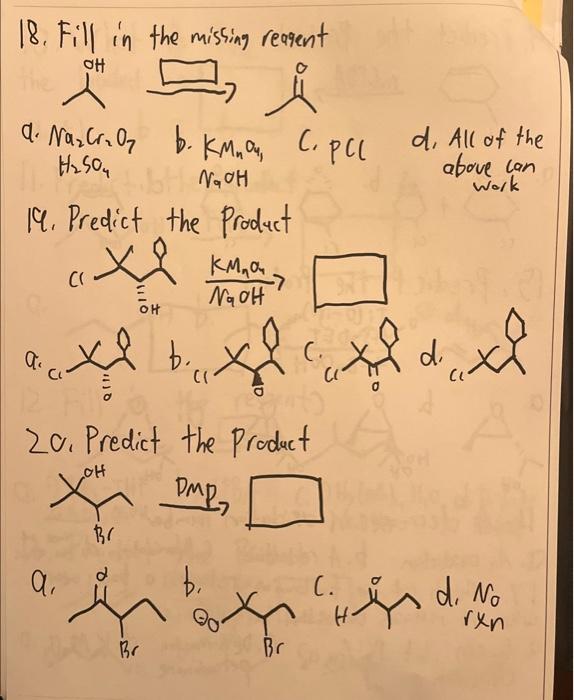 18. Fill in the missing reagent
OH
O
a. Na2Cr2O7 b. KMnO4, C. PCC d. All of the
H2SO4 NaOH above can
work
19. Predict the Product
Cl KMnO4
OH NaOH
a. Cl b. Cl C. Cl d. Cl
O O O
20. Predict the Product
OH
DMP
Br
a. O b. C. O d. No
⊖O H rxn
Br Br